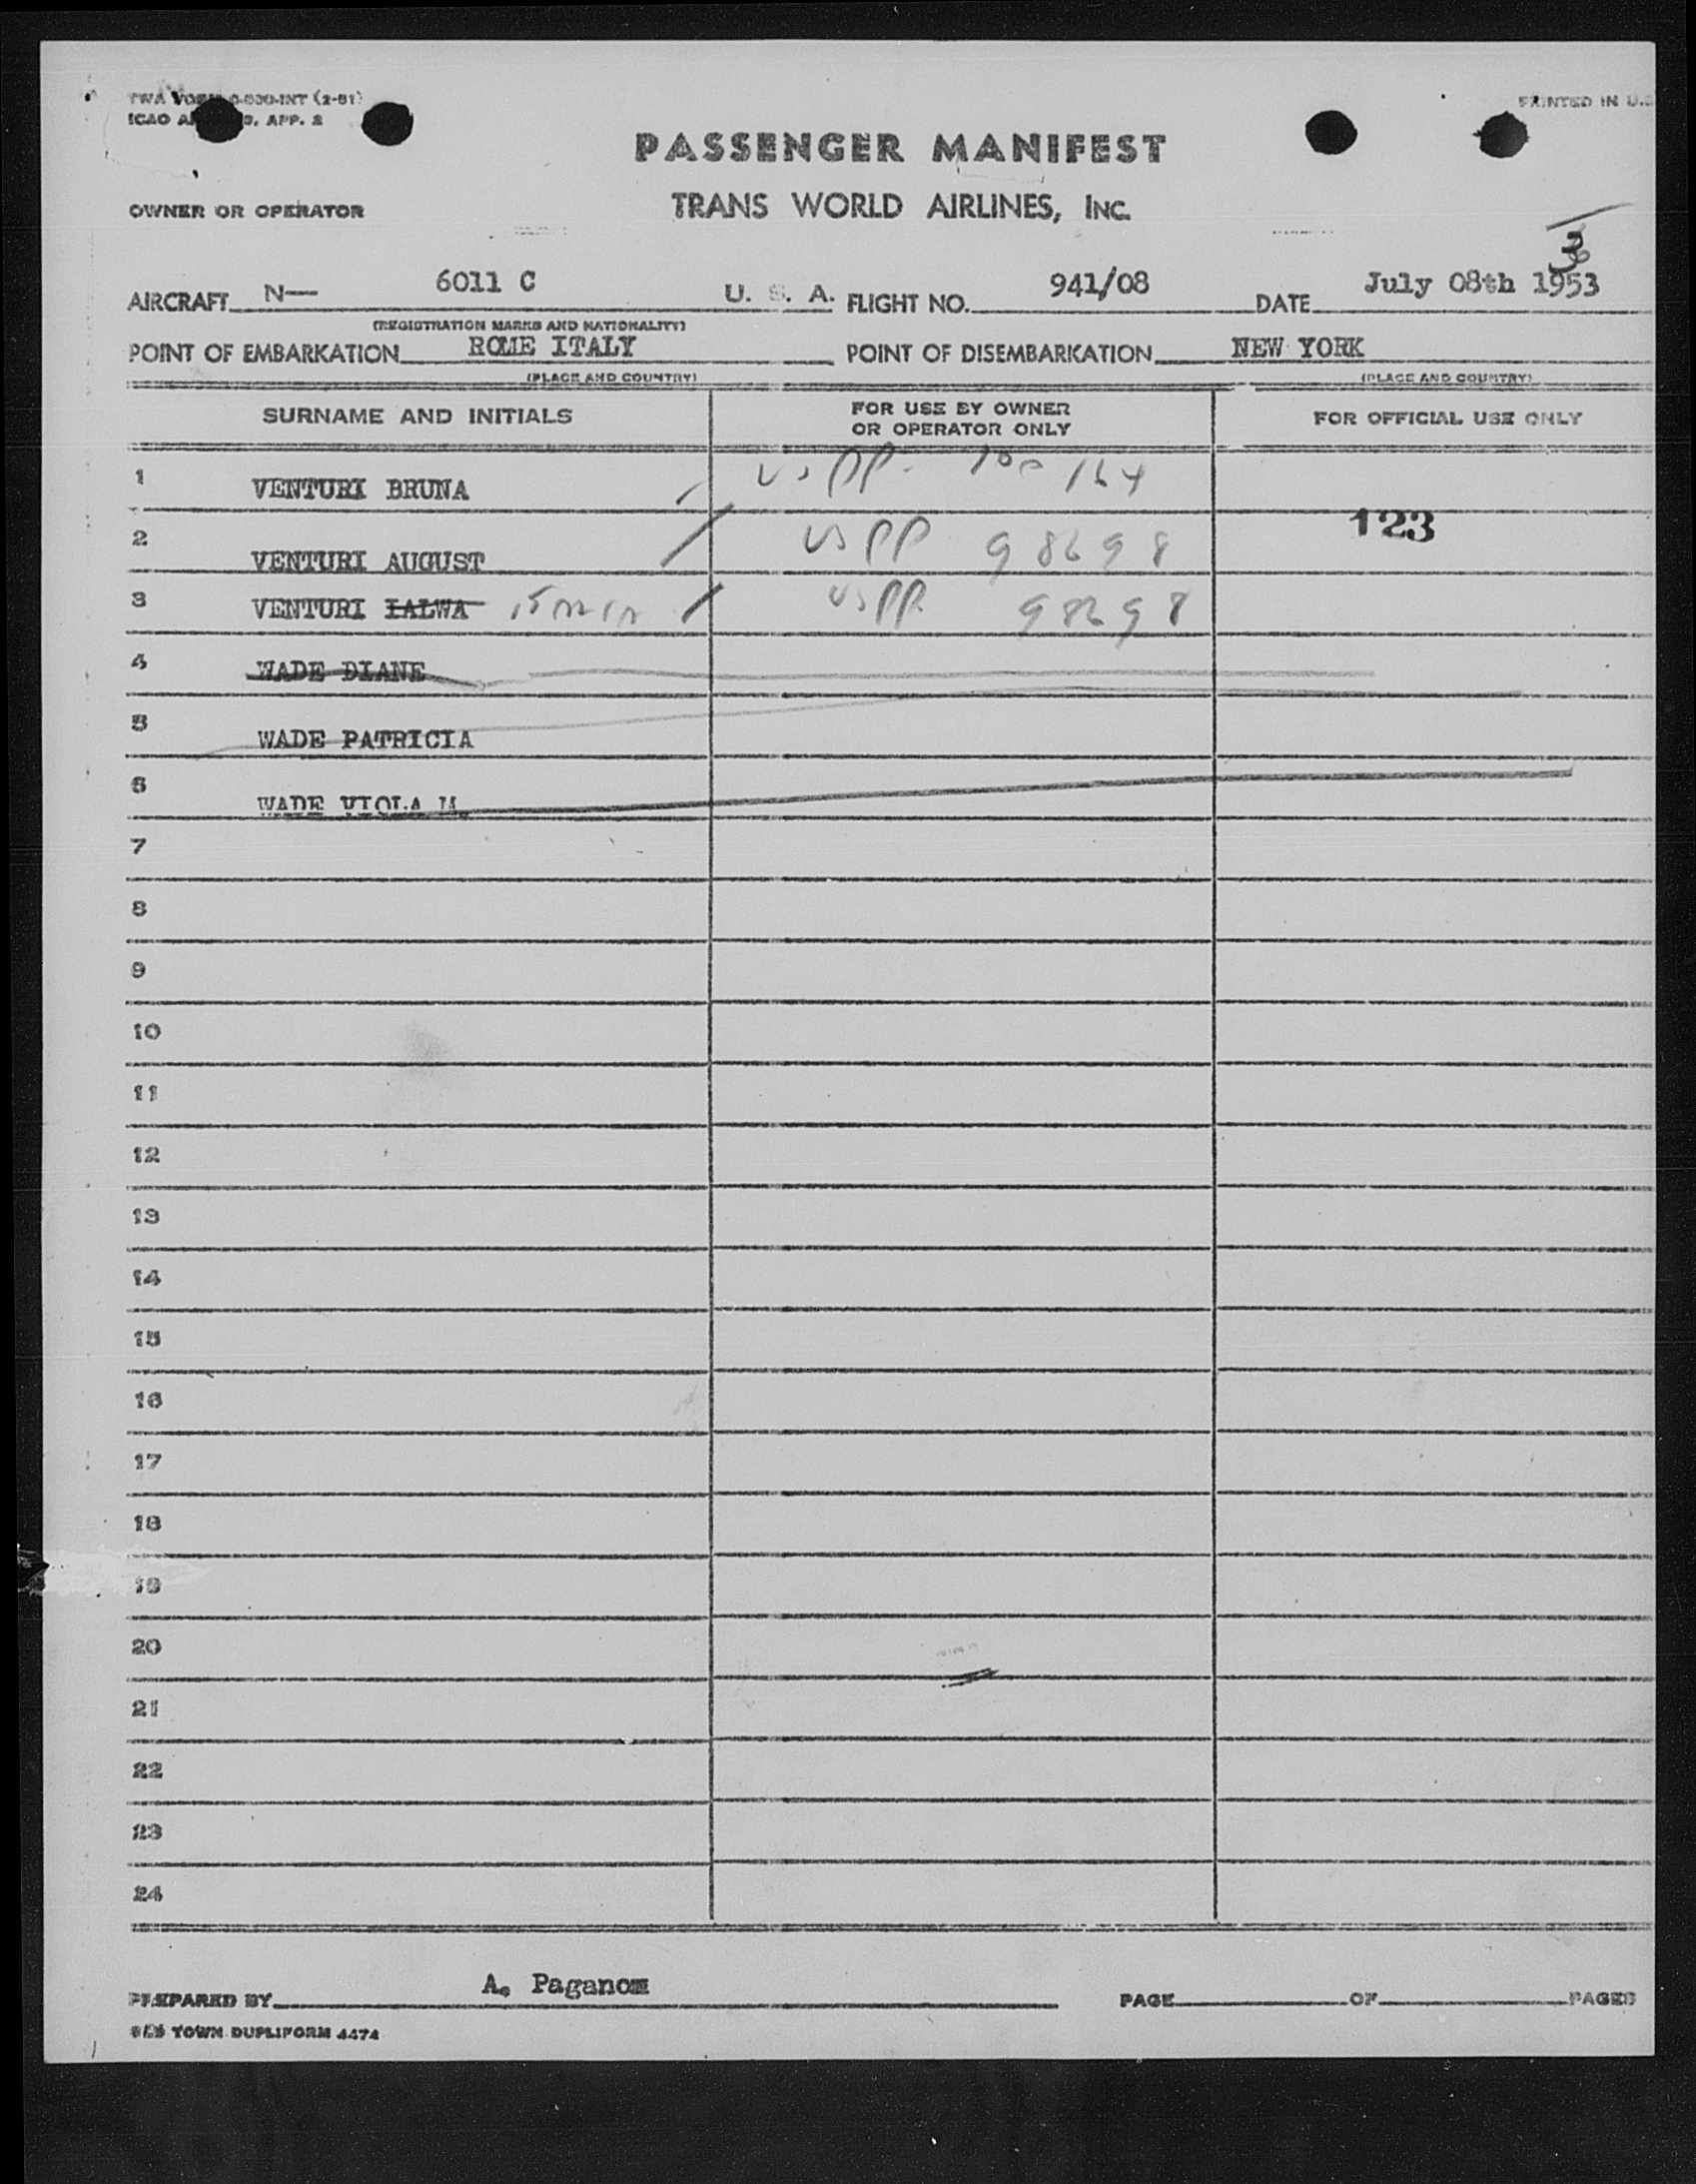 TWA
ICAO
APP. 2
PRINTED IN U.S
PASSENGER MANIFEST
OWNER OR OPERATOR
TRANS WORLD AIRLINES, INC.
3
AIRCRAFT N— 6011 C U. S. A. FLIGHT NO. 941/08 DATE July 08th 1953
(REGISTRATION MARKS AND NATIONALITY)
POINT OF EMBARKATION ROME ITALY POINT OF DISEMBARKATION NEW YORK
(PLACE AND COUNTRY) (PLACE AND COUNTRY)
SURNAME AND INITIALS FOR USE BY OWNER OR OPERATOR ONLY FOR OFFICIAL USE ONLY
1 VENTURI BRUNA US PP. 100164
2 VENTURI AUGUST US PP 98698 123
3 VENTURI US PP. 98698
4 WADE DIANE
5 WADE PATRICIA
6 WADE VIOLA M.
7
8
9
10
11
12
13
14
15
16
17
18
19
20
21
22
23
24
PREPARED BY A. Paganom PAGE OF PAGES
TOWN DUPLIFORM 4474